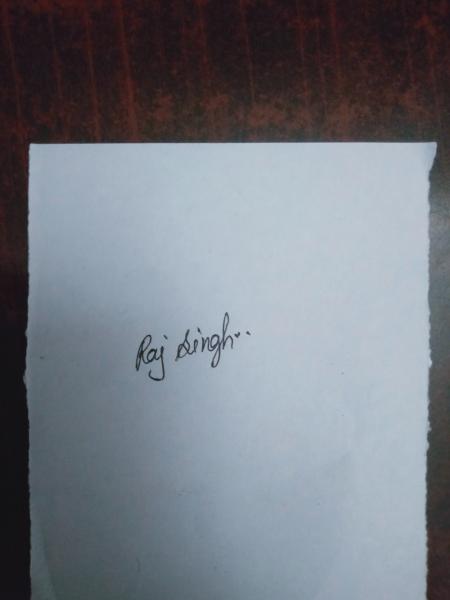 Raj Singh..